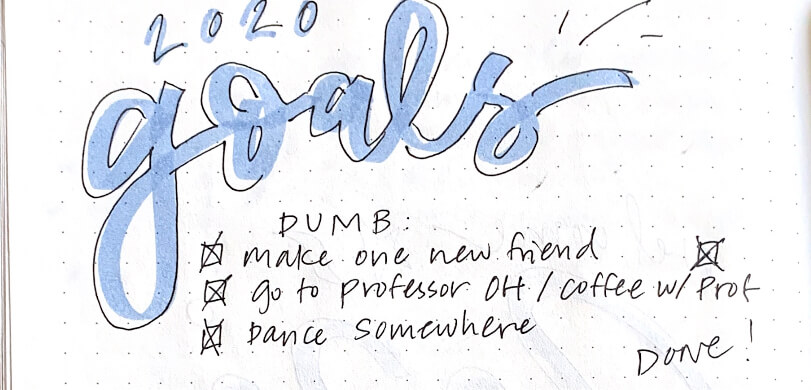 2020
goals
DUMB:
make one new friend
go to professor OH / coffee w/ Prof
Dance Somewhere
DONE!